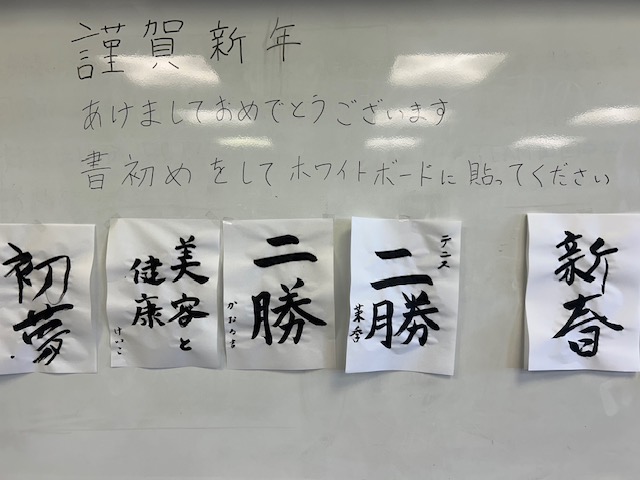 謹賀新年
あけましておめでとうございます
書初めをしてホワイトボードに貼ってください
初夢
美容と
健康
けいこ
二勝
テニス
二勝
新春